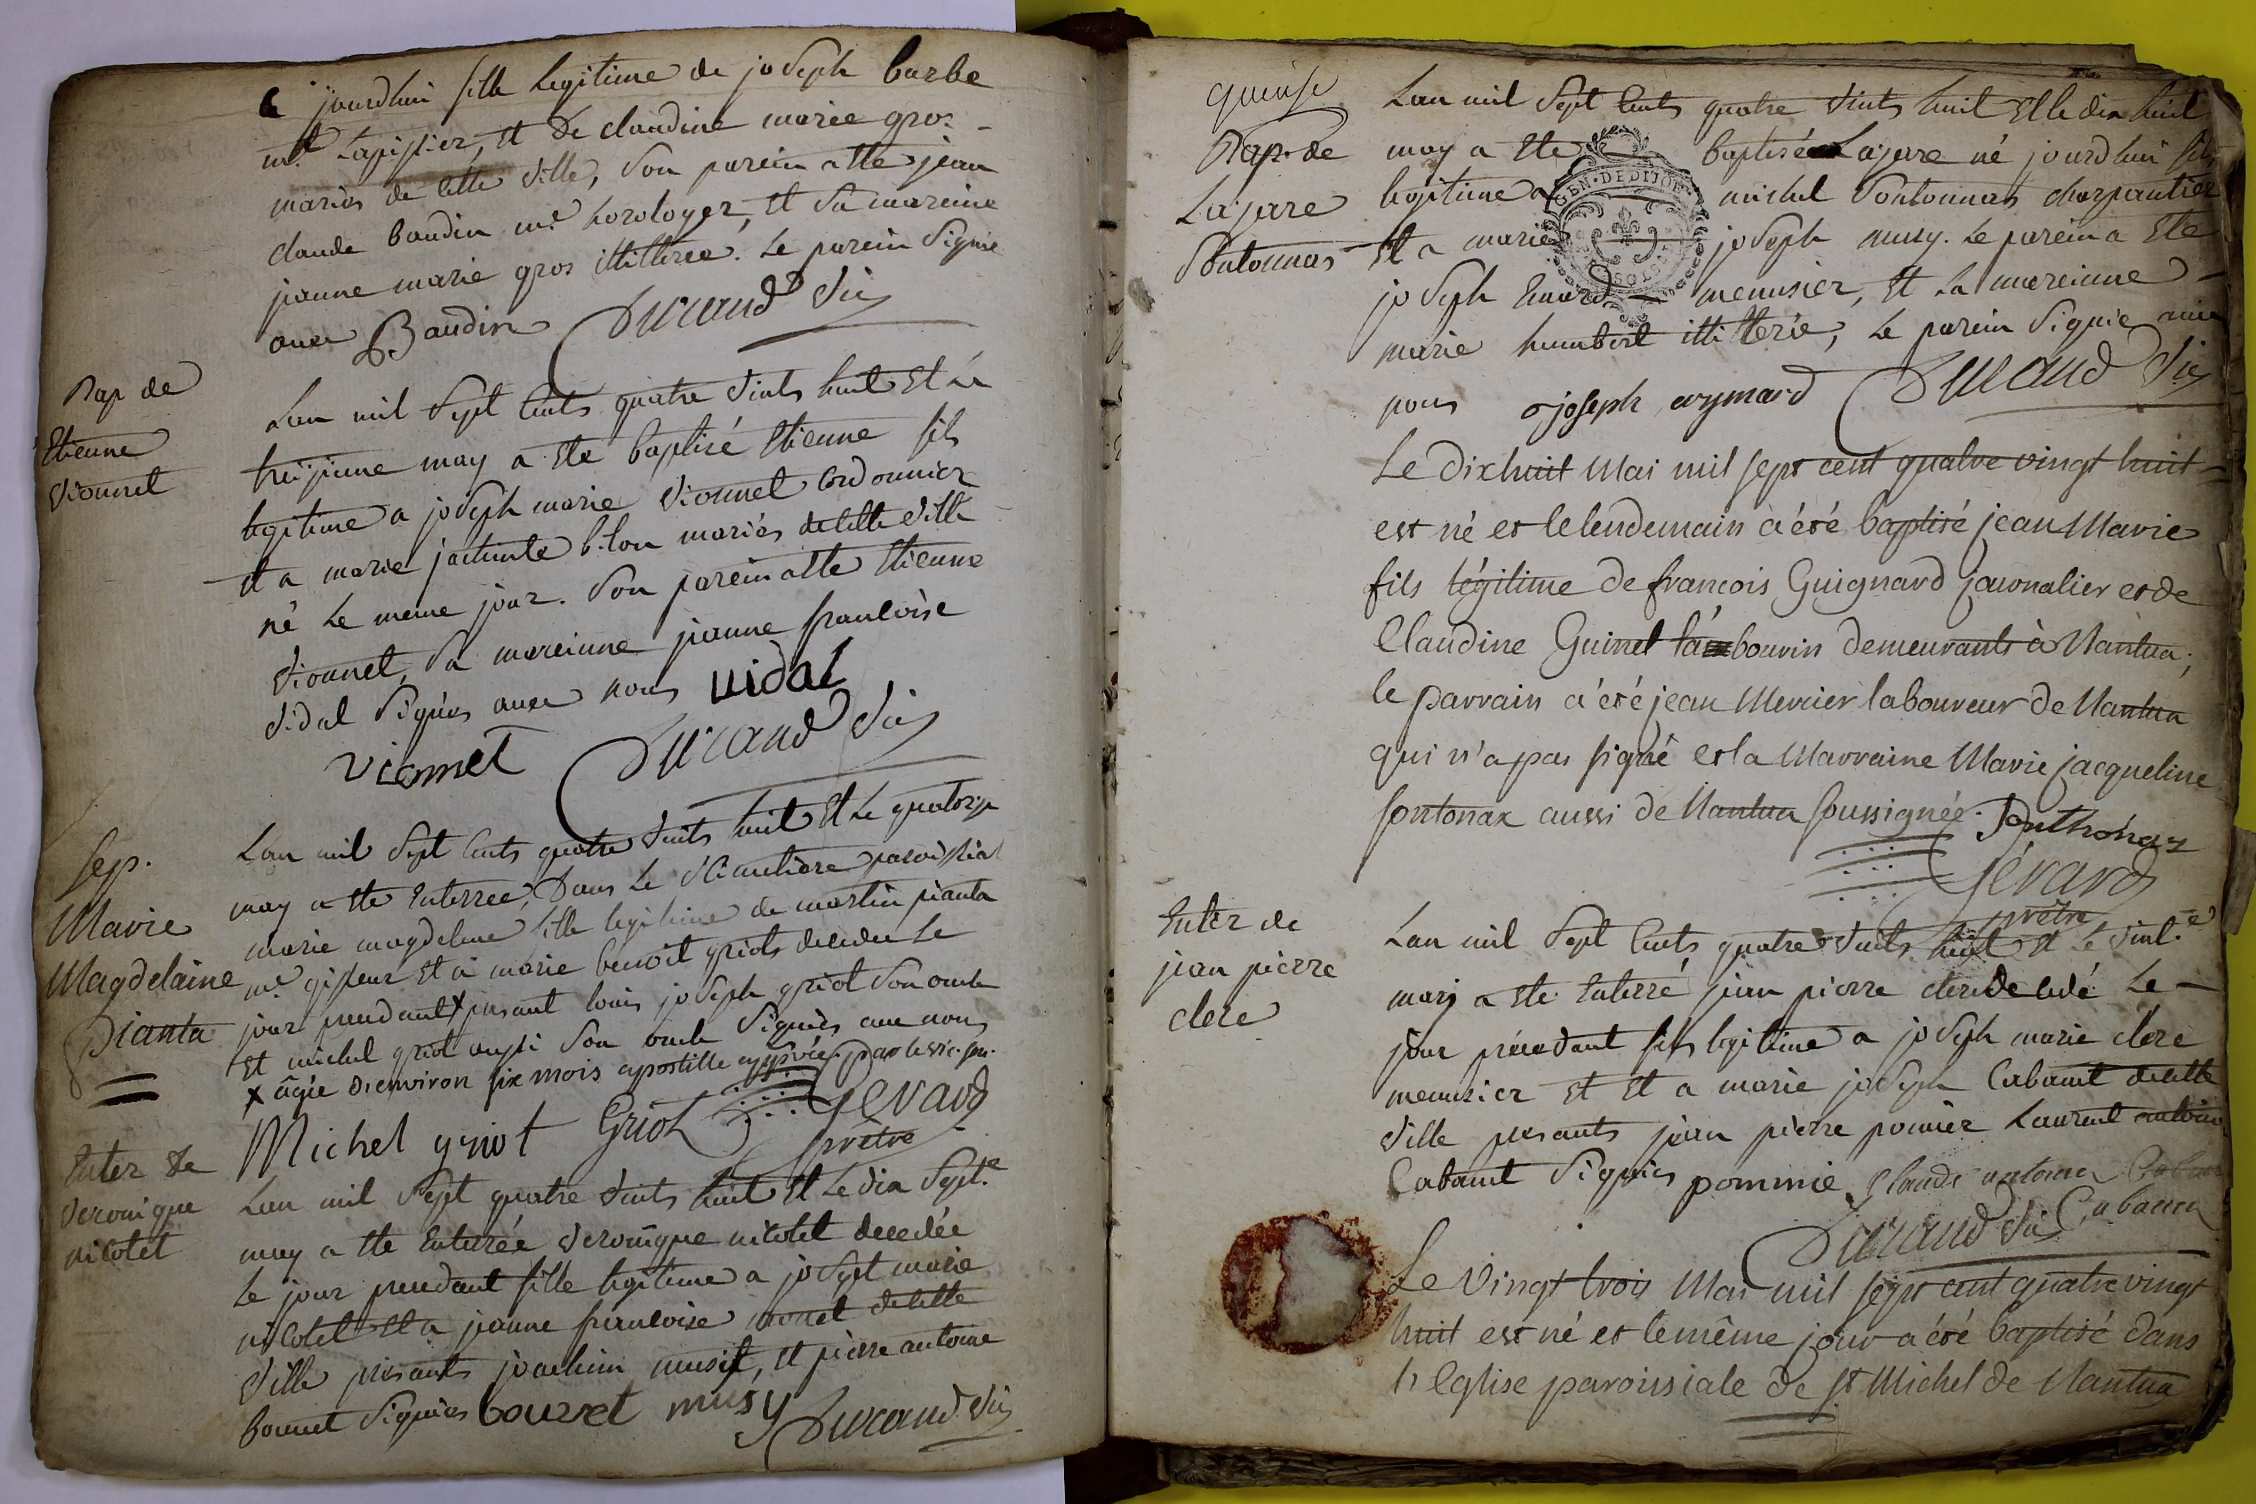 jourdhui fille legitime de joseph barbe
mre tapissier, et de claudine marie gros
mariés de cette ville, son parein a ete jean
claude baudin mre horologer, et sa mareine
jeanne marie gros illiteree. le parein signé
avec Baudin Durand vic
Bap de
Etienne
vionnet
Lan mil sept cents quatre vints huit et le
treizieme may a ete baptisé Etienne fils
legitime a joseph marie vionnet cordonnier
et a marie jacinte mariés de cette ville
né le meme jour. son parein a ete Etienne
vionnet, sa mareinne jeanne francoise
vidal signés avec nous vidal
vionnet Durand vic
Sep.
Marie
Magdelaine
Pianta
Lan mil sept cents quatre vints huit et le quatorze
may a ete enterree, dans le cimentiere paroissial
marie magdeleine fille legitime de martin pianta
mre gipseur et a marie benoit griots decedee le
jour precedant x presant louis joseph griot son oncle
et michel griot aussi son oncle signés avec nous
x agée d'environ six mois apostille approvée par le vic. sou.
Michel griot Griot Gévard
prêtre
Enter de
veronique
nicolet
Lan mil sept quatre vints huit et le dix sept.e
may a ete enterrée veronique nicolet decedée
le jour precedant fille legitime a josept marie
nicolet et a jeanne francoise de cette
ville presants joachim musy, et pierre antoine
bonnet signés bouvet musy Durand vic
quinse
Bap. de
Lazare
Pontonnas
Lan mil sept cents quatre vints huit et le dix huit
may a ete baptisé Lazare né jourdhui fils
legitime a michel Pontonnas charpantier
et a marie joseph musy. le parein a ete
joseph Emard menusier, et la mareinne
marie humbert illiterée, le parein signé avec
nous joseph aymard Durand vic
Le dixhuit Mai mil sept cent quatre vingt huit
est né et le lendemain a été baptisé jean Marie
fils légitime de francois Guignard journalier et de
Claudine Guinet tambourin demeurants à Nantua;
le parrain a été jean Mercier laboureur de Nantua
qui n'a pas signé et la Marraine Marie jacqueline
pontonax aussi de Nantua soussignée. Ponthonax
Gévard
prêtre
Enter de
jean pierre
clere
Lan mil sept cents quatre vints huit et le vint.e
may a ete enterré jean pierre clere decedé le
jour précedant fils legitime a joseph marie clere
menusier et et a marie joseph Cabanet de cette
ville presants jean pierre pomier Laurent antoine
Cabanet signés pommie Claude antoine Cabanet
Durand vic Cabanet
Le vingt trois Mai mil sept cent quatre vingt
huit est né et le même jour a été baptisé dans
l'Eglise paroissiale de St Michel de Nantua
GEN. DE DIJON